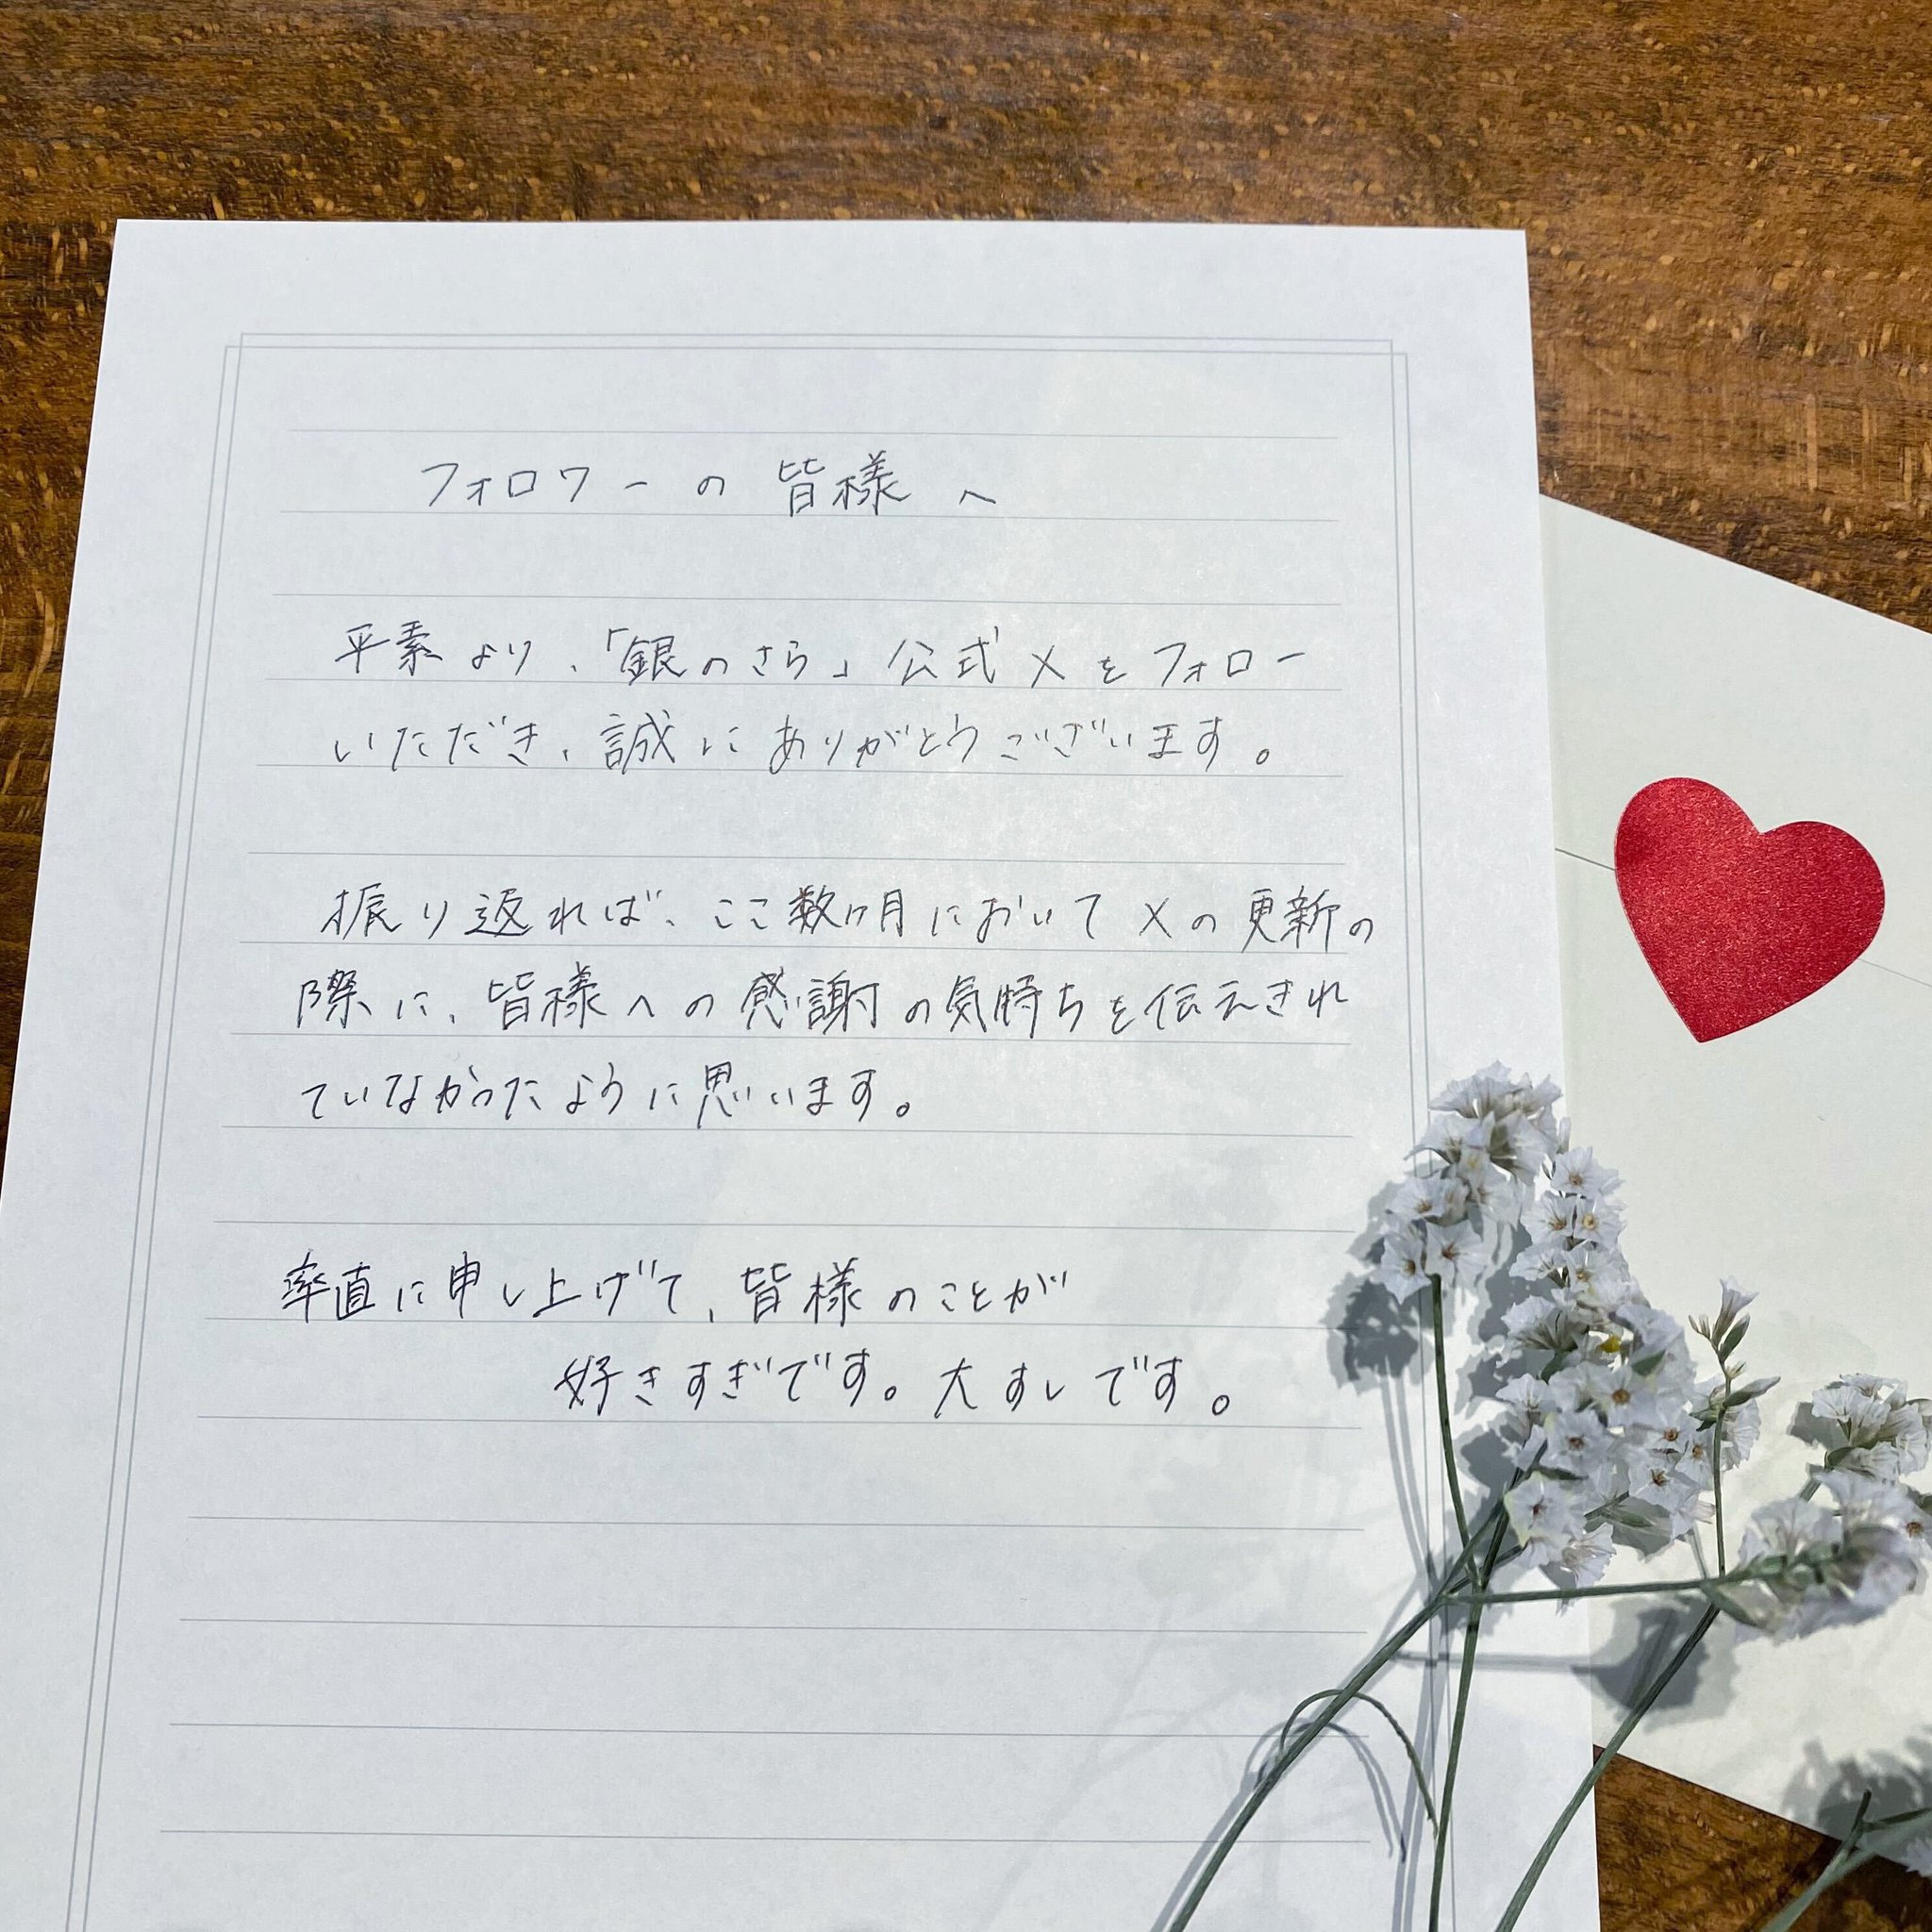 フォロワーの皆様へ
平素より、「銀のさら」公式Xをフォロー
いただき、誠にありがとうございます。
振り返れば、ここ数ヶ月においてXの更新の
際に、皆様への感謝の気持ちを伝えきれ
ていなかったように思います。
率直に申し上げて、皆様のことが
好きすぎです。大すしです。